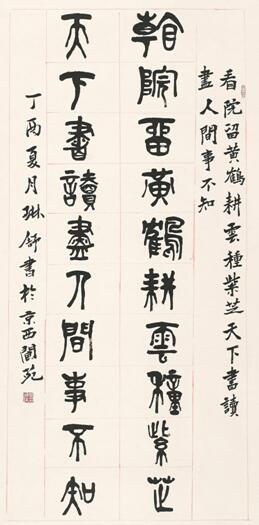 看院留黃鶴耕雲種紫芝天下書讀
盡人間事不知
看院留黃鶴耕雲種紫芝
天下書讀盡人間事不知
丁酉夏月琳舒書於京西閬苑